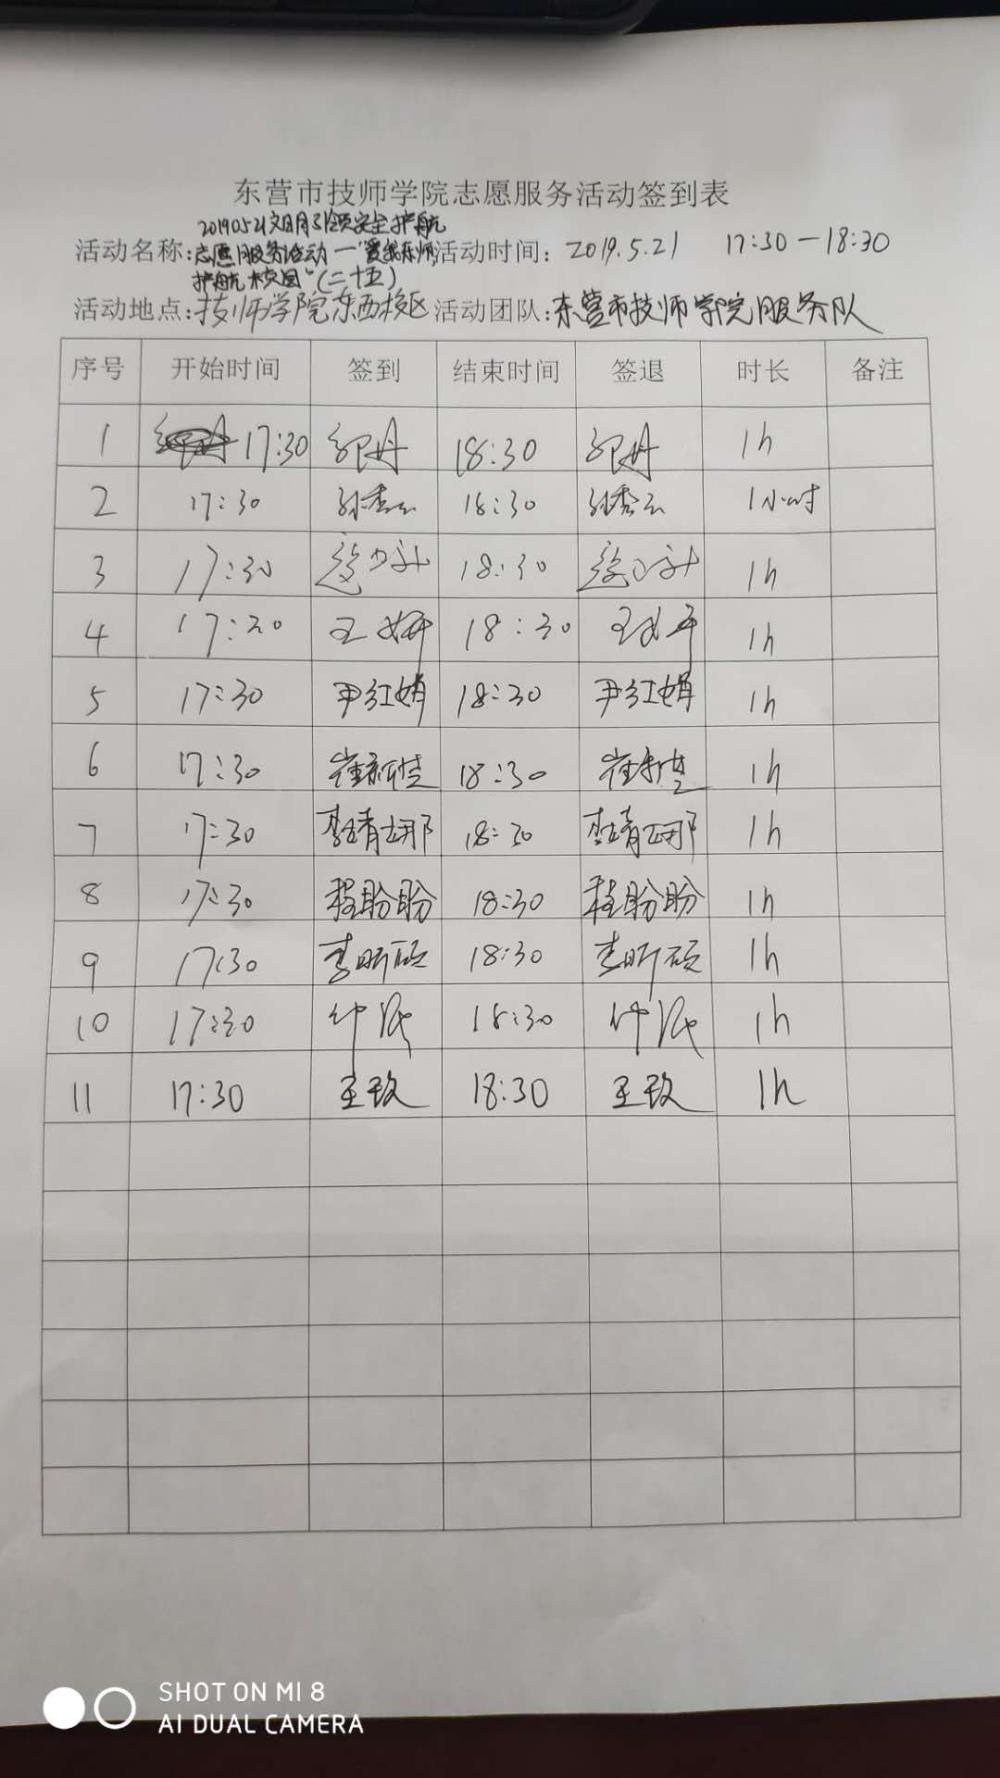 东营市技师学院志愿服务活动签到表
20190521文明引领安全护航
活动名称:志愿服务活动一"爱我东师 活动时间: 2019.5.21 17:30-18:30
护航校园"(二十五)
活动地点:技师学院东西校区 活动团队:东营市技师学院服务队
序号 开始时间 签到 结束时间 签退 时长 备注
1 17:30 纪丹 18:30 纪丹 1h
2 17:30 孙秀云 18:30 孙秀云 1小时
3 17:30 18:30 1h
4 17:30 王妍 18:30 王妍 1h
5 17:30 尹红娟 18:30 尹红娟 1h
6 17:30 崔新楚 18:30 崔新楚 1h
7 17:30 李靖娜 18:30 李靖娜 1h
8 17:30 程盼盼 18:30 程盼盼 1h
9 17:30 李昕硕 18:30 李昕硕 1h
10 17:30 18:30 1h
11 17:30 王玫 18:30 王玫 1h
SHOT ON MI 8
AI DUAL CAMERA